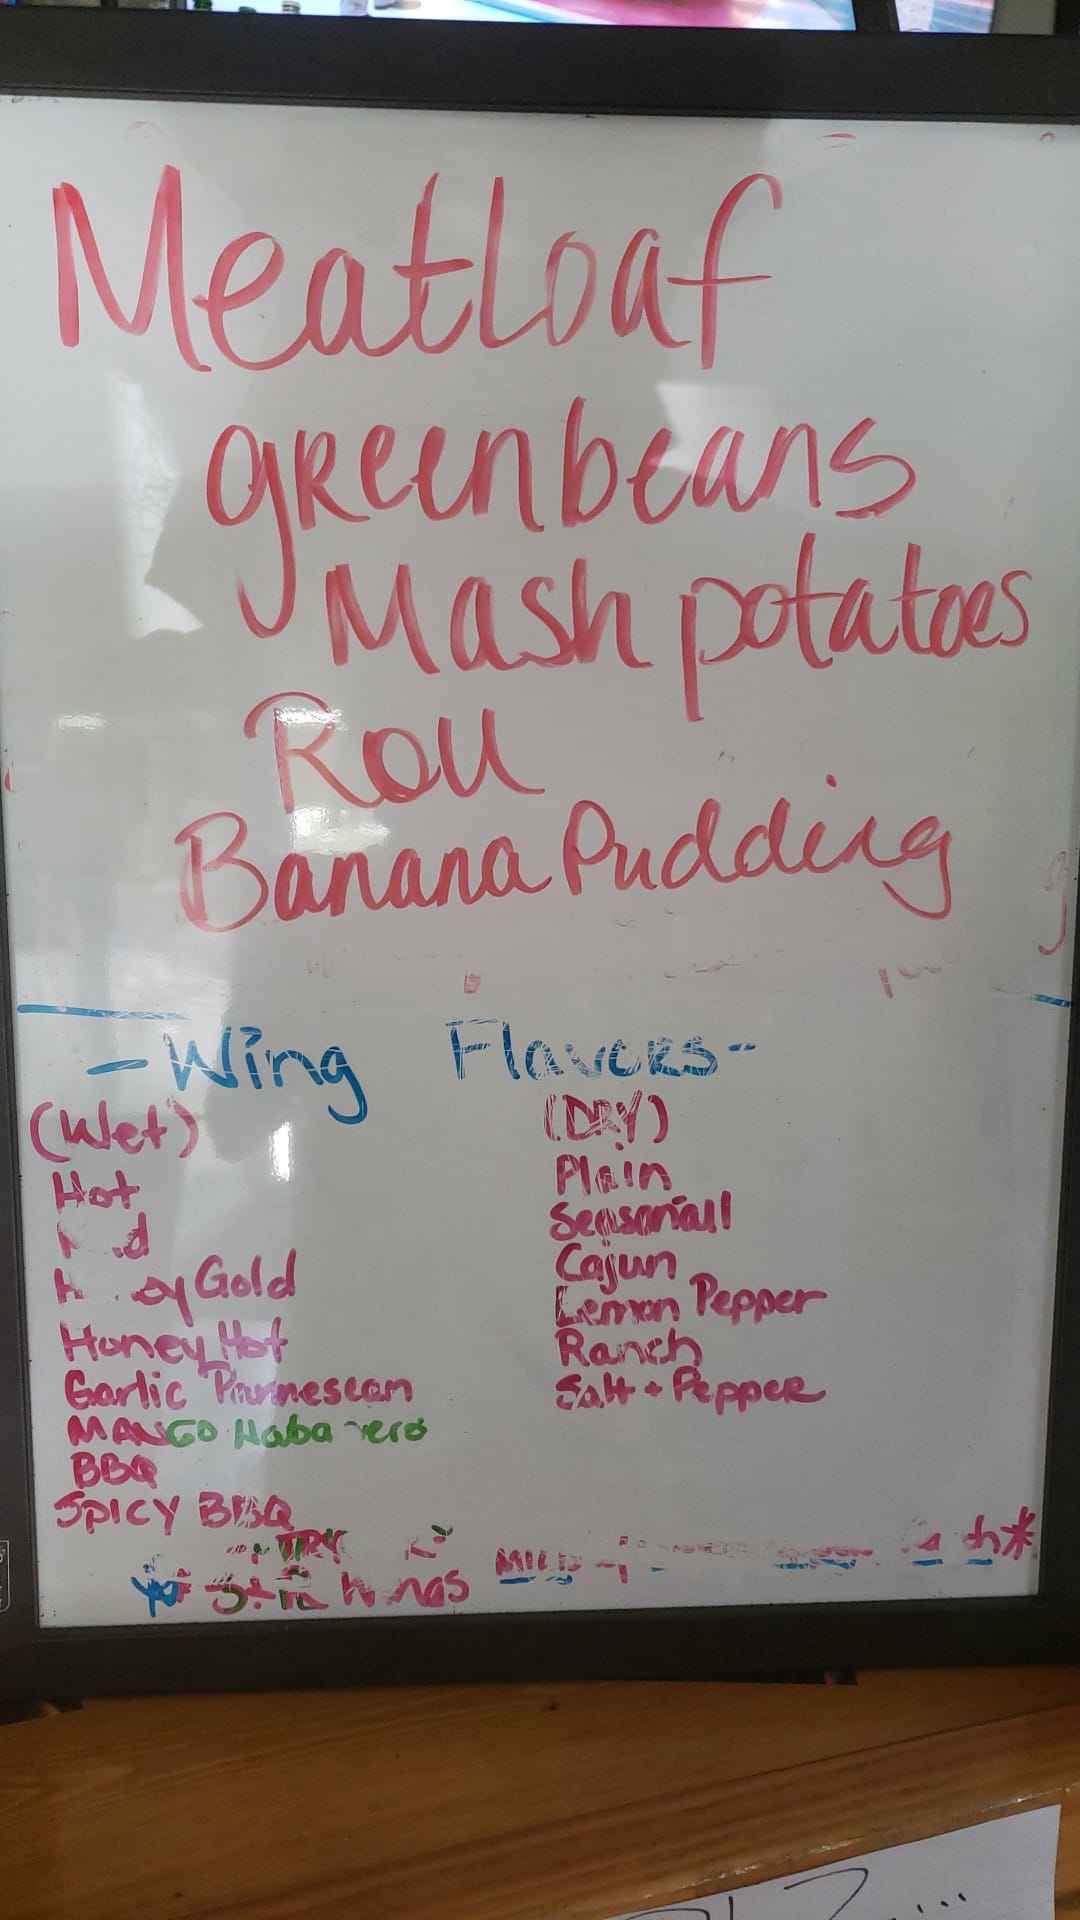 Meatloaf
greenbeans
Mash potatoes
Roll
Banana Pudding
- Wing Flavors -
(Wet)
Hot
Gold
Honey Hot
Garlic Parmesean
MANGO Habanero
BBQ
SPICY BBQ
(DRY)
Plain
Seasonall
Cajun
Lemon Pepper
Ranch
Salt + Pepper
TRY
MILD